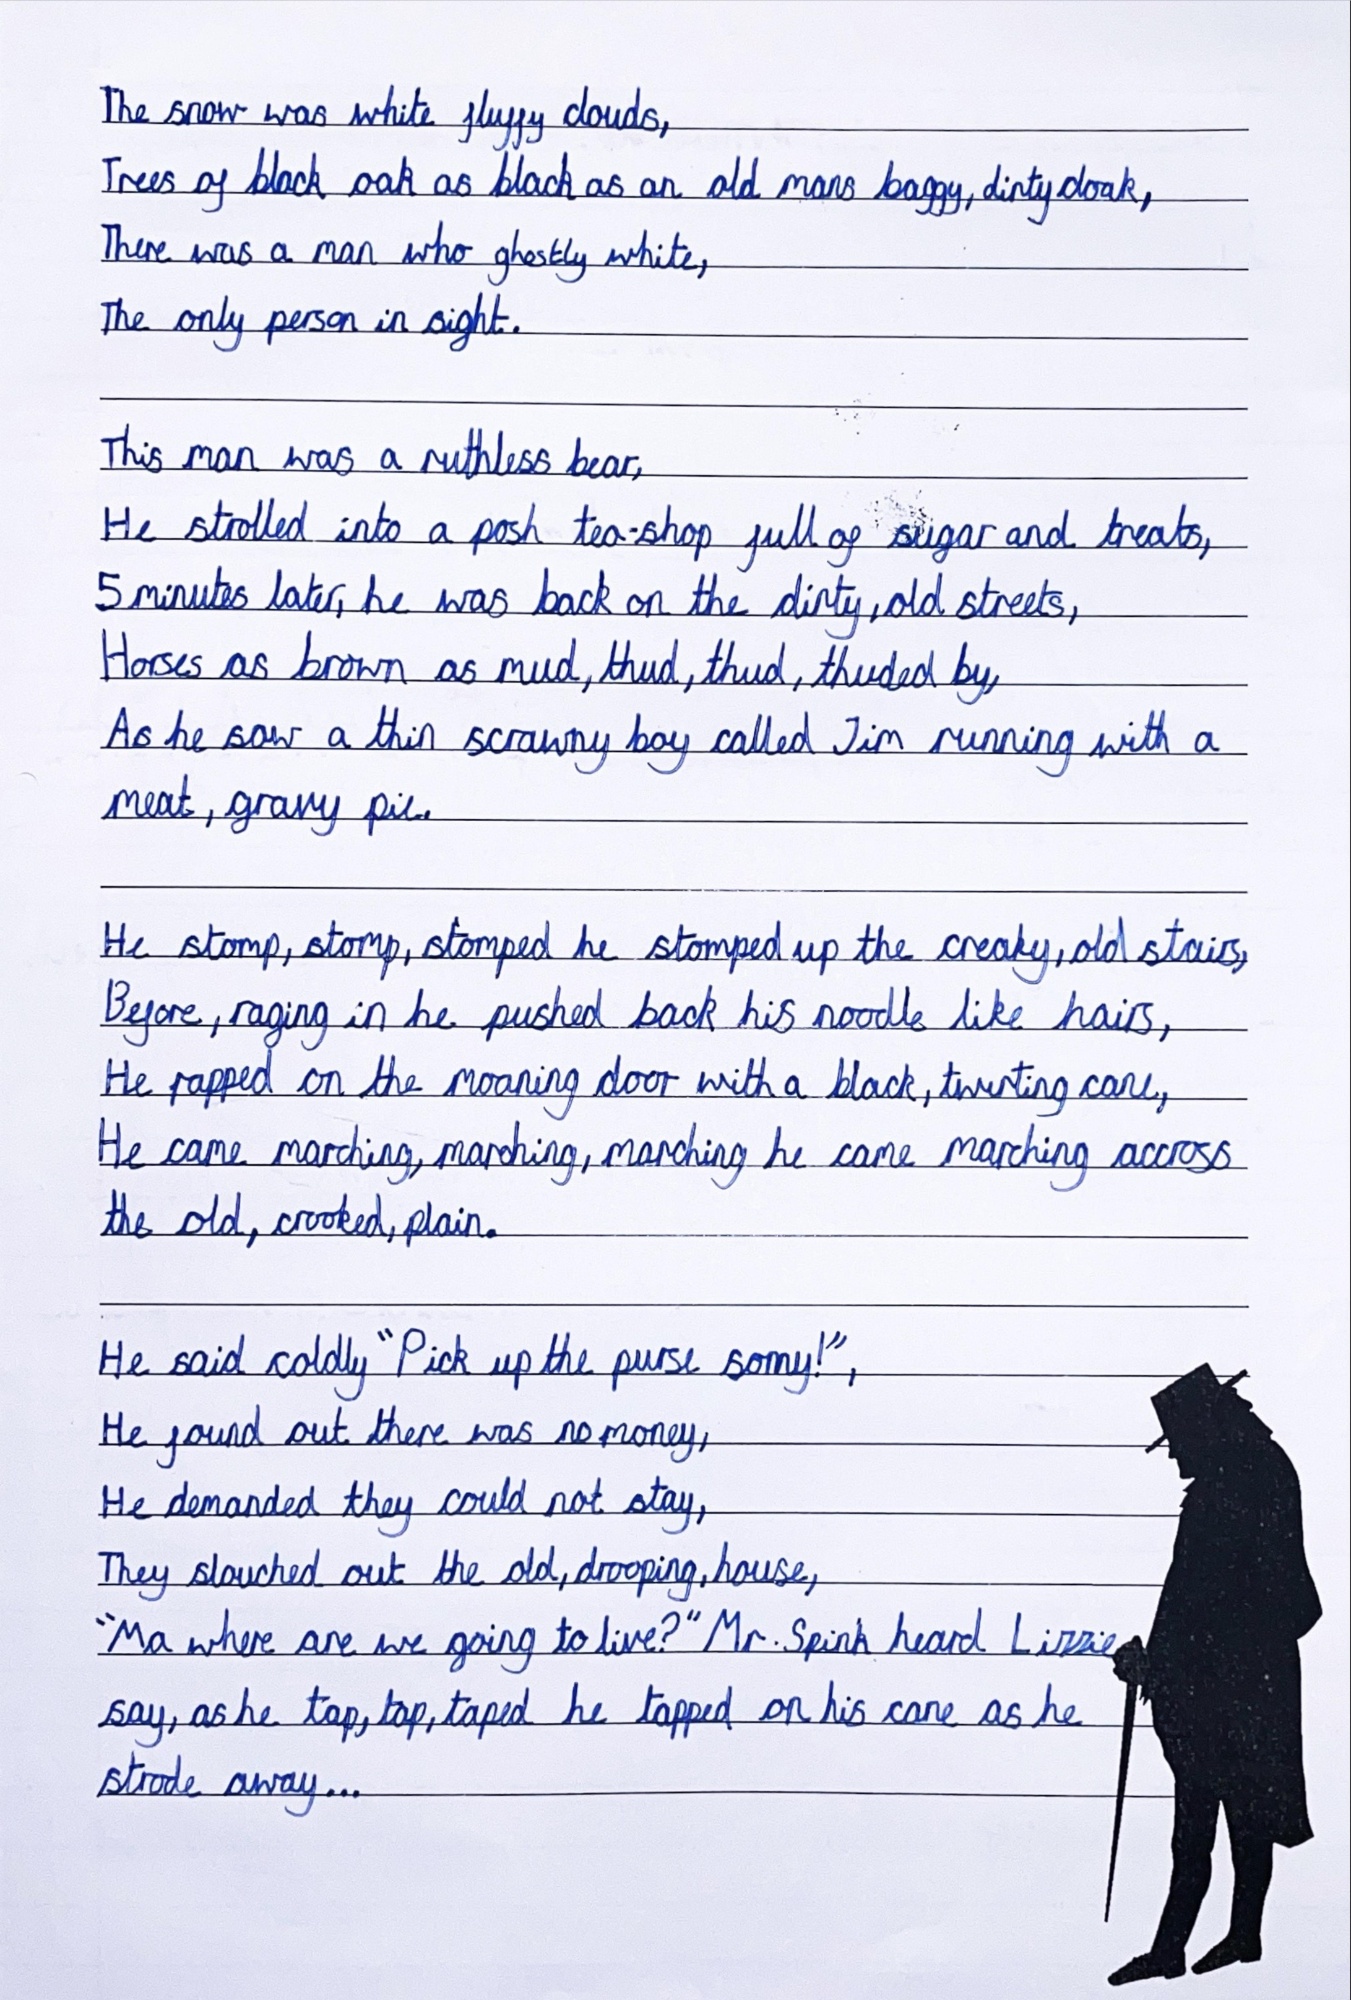 The snow was white fluffy clouds,
Trees of black oak as black as an old mans baggy, dirty cloak,
There was a man who ghostly white,
The only person in sight.
This man was a ruthless bear,
He strolled into a posh tea-shop full of sugar and treats,
5 minutes later, he was back on the dirty, old streets,
Horses as brown as mud, thud, thud, thuded by,
As he saw a thin scrawny boy called Jim running with a
meat, gravy pie.
He stomp, stomp, stomped he stomped up the creaky, old stairs,
Before, raging in he pushed back his noodle like hairs,
He rapped on the moaning door with a black, twisting cane,
He came marching, marching, marching he came marching accross
the old, crooked, plain.
He said coldly "Pick up the purse sonny!",
He found out there was no money,
He demanded they could not stay,
They slouched out the old, drooping, house,
"Ma where are we going to live?" Mr. Spink heard Lizzie
say, as he tap, tap, taped he tapped on his cane as he
strode away...